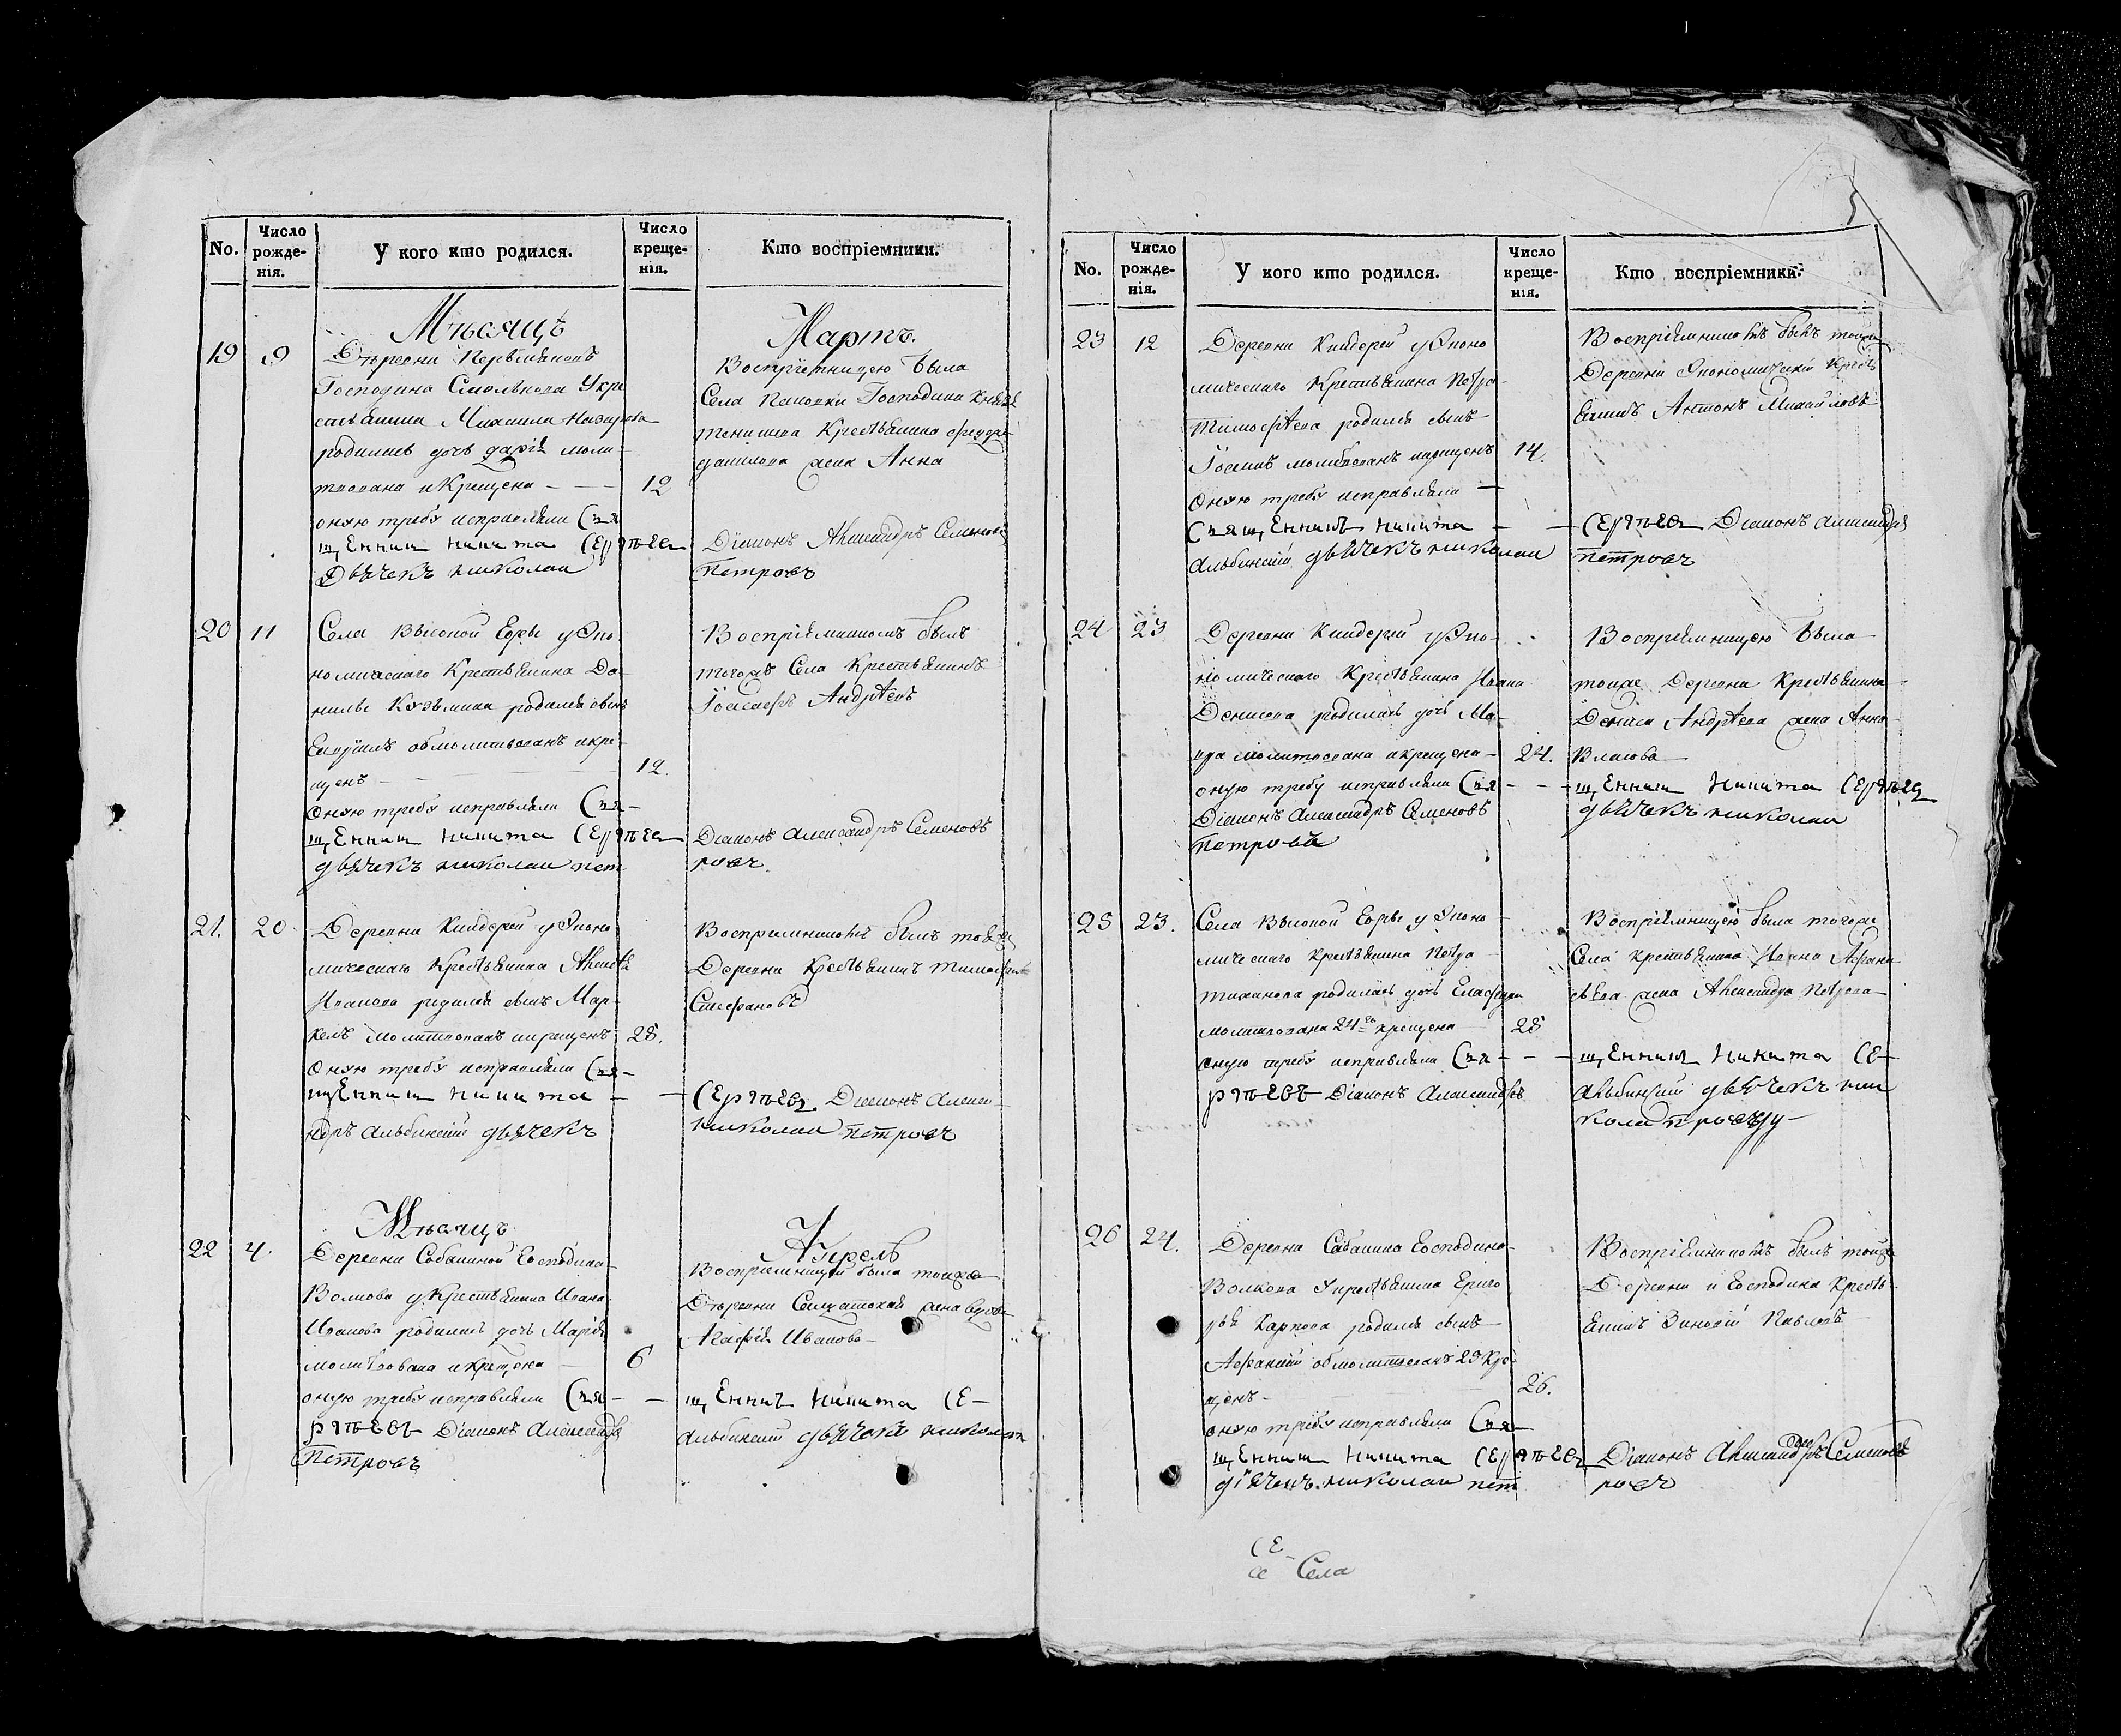 No.
Число рожде-нія.
У кого кто родился.
Число креще-нія.
Кто воспріемники.
Мѣсяцъ
Мартъ.
19
9
Дѣревни
Господина Смолькова Укре
стьянина Михаила Назарова
родилась дочь дарія моли-
твована и Крещена
12
оную требу исправляли Свя
щЕнник Никита СЕргѣЕв
Дьячекъ николаи
Воспріемницею была
Села Пановки Господина Князя
тенишева Крестьянина
данилова жена Анна
Діаконъ Александръ Семеновъ
Петровъ
20
11
Села Высокой Горы у Эко
номическаго Крестьянина Да-
нилы Кузьмина родился сынъ
обмолитвованъ и кре-
щенъ
12.
Оную требу исправляли Свя-
щЕнник Никита СЕргѣЕв
дьячекъ николаи пет
Воспріемникомъ былъ
тогожъ Села Крестьянинъ
Іоасафъ Андрѣевъ
Діаконъ Александръ Семеновъ
ровъ.
21.
20
Деревни Киндерей у Эконо
мическаго Крестьянина Алексѣя
Иванова родился сынъ Мар-
келъ молитвованъ и крещенъ
25.
Оную требу исправляли Свя-
щЕнник Никита
ндръ Альбинскій дьячекъ
Воспріемникомъ былъ тойже
Деревни Крестьянинъ тимофей
Стефановъ
СЕргѣЕв Діаконъ Алекса-
николаи петровъ
Мѣсяцъ
Апрель
22
4.
Деревни Собакиной Господина
Волкова у Крестьянина Ивана
Иванова родилась дочь Марія
молитвована и крещена
6
оную требу исправляли Свя-
ргѣЕвъ Діаконъ Александръ
Петровъ
Воспріемницей была тойже
Дѣревни Салдатская жена вдова
Агафія Иванова
щЕнникъ Никита СЕ-
альбинскій дьячекъ николаи
No.
Число рожде-нія.
У кого кто родился.
Число креще-нія.
Кто воспріемники.
23
12
Деревни Киндерей у Эконо
мическаго Крестьянина Петра
Тимофѣева родился сынъ
Іоаннъ молитвованъ и крещенъ
14.
Оную требу исправляли
СвящЕнникъ Никита
Альбинскій дьячекъ николаи
Воспріемникомъ былъ тойже
Деревни Экономическій Кресть
янинъ Антонъ Михайловъ
СЕргѣЕв Діаконъ Александръ
петровъ
24
23
Деревни Киндерей у Эко-
номическаго Крестьянина Ивана
Денисова родилась дочь Ма-
ура молитвована и крещена
24.
оную требу исправляли Свя
Діаконъ Александръ Семеновъ
петровъ
Воспріемницею была
тойже Деревни Крестьянина
Дениса Андрѣева жена Анна
Власова
щЕнник Никита СЕргѣЕв
дьячекъ николаи
25
23.
Села Высокой Горы у Эконо
мическаго Крестьянина Петра
родилась дочь
молитвована 24го крещена
25
оную требу исправляли Свя
ргѣЕвъ Діаконъ Александръ
Воспріемницею была тогоже
Села Крестьянина Ивана Афана
сьева жена Александра Петрова
щЕнник Никита СЕ-
альбинскій дьячекъ ни
26
24.
Деревни Сабакина Господина
Волкова Укрестьянина Григо
рья Карпова родился сынъ
Афанасій обмолитвованъ 25 Кре
щенъ
26.
оную требу исправляли Свя
щЕнник Никита СЕргѣЕв
дьячекъ николаи пет
Воспріемникомъ былъ тойже
Деревни и Господина Кресть
янинъ Зиновій Павловъ
Діаконъ Александръ Семеновъ
ровъ
СЕ
Села